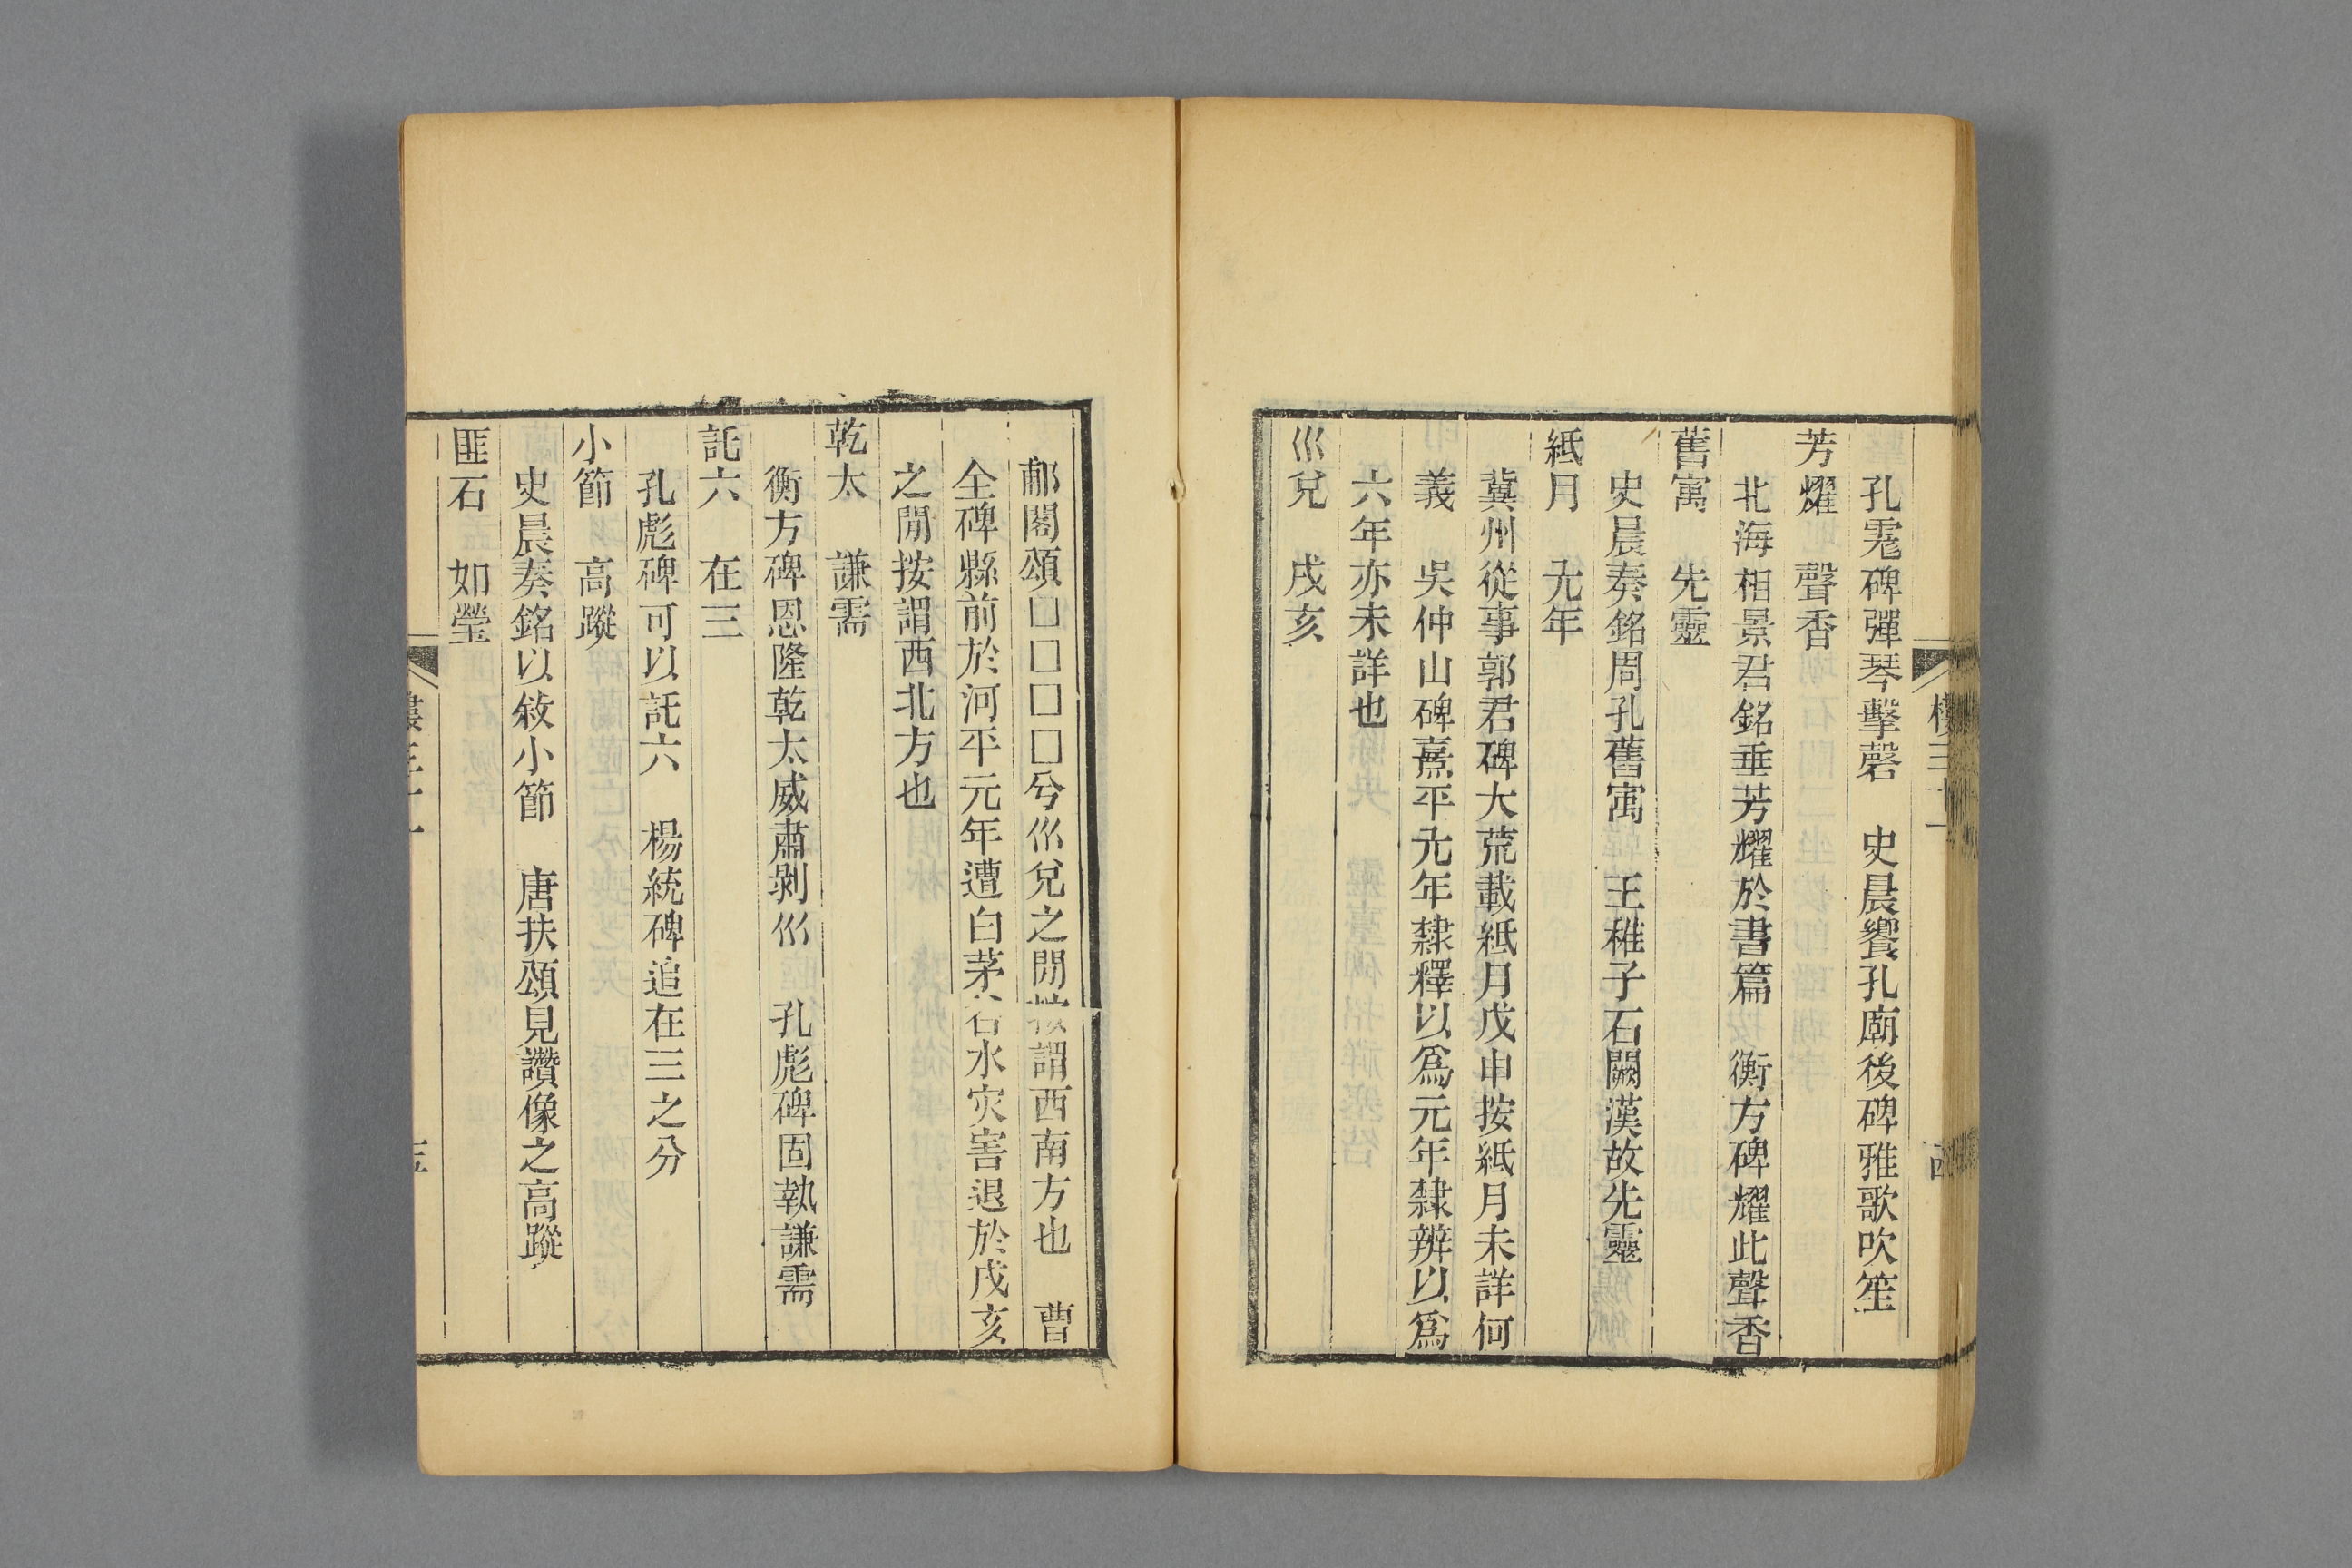 孔宙碑彈琴擊磬　史晨饗孔廟後碑雅歌吹笙
芳燿　聲香
北海相景君銘垂芳燿於書篇　衡方碑燿此聲香
舊㝢　先靈
史晨奏銘周孔舊㝢　王稚子石闕漢故先靈
紙月　𠒋年
冀州從事郭君碑大荒載紙月戊申按紙月未詳何
義　吳仲山碑熹平𠒋年隸釋以爲元年隸辨以爲
六年亦未詳也
巛兌　戌亥
郙閣頌□□□□兮巛兌之閒按謂西南方也　曹
全碑縣前於河平元年遭白茅谷水灾害退於戌亥
之閒按謂西北方也
乾太　謙需
衡方碑恩隆乾太威肅剝巛　孔彪碑固執謙需
託六　在三
孔彪碑可以託六　楊統碑追在三之分
小節　高蹤
史晨奏銘以敘小節　唐扶頌見讚像之高蹤
匪石　如瑩